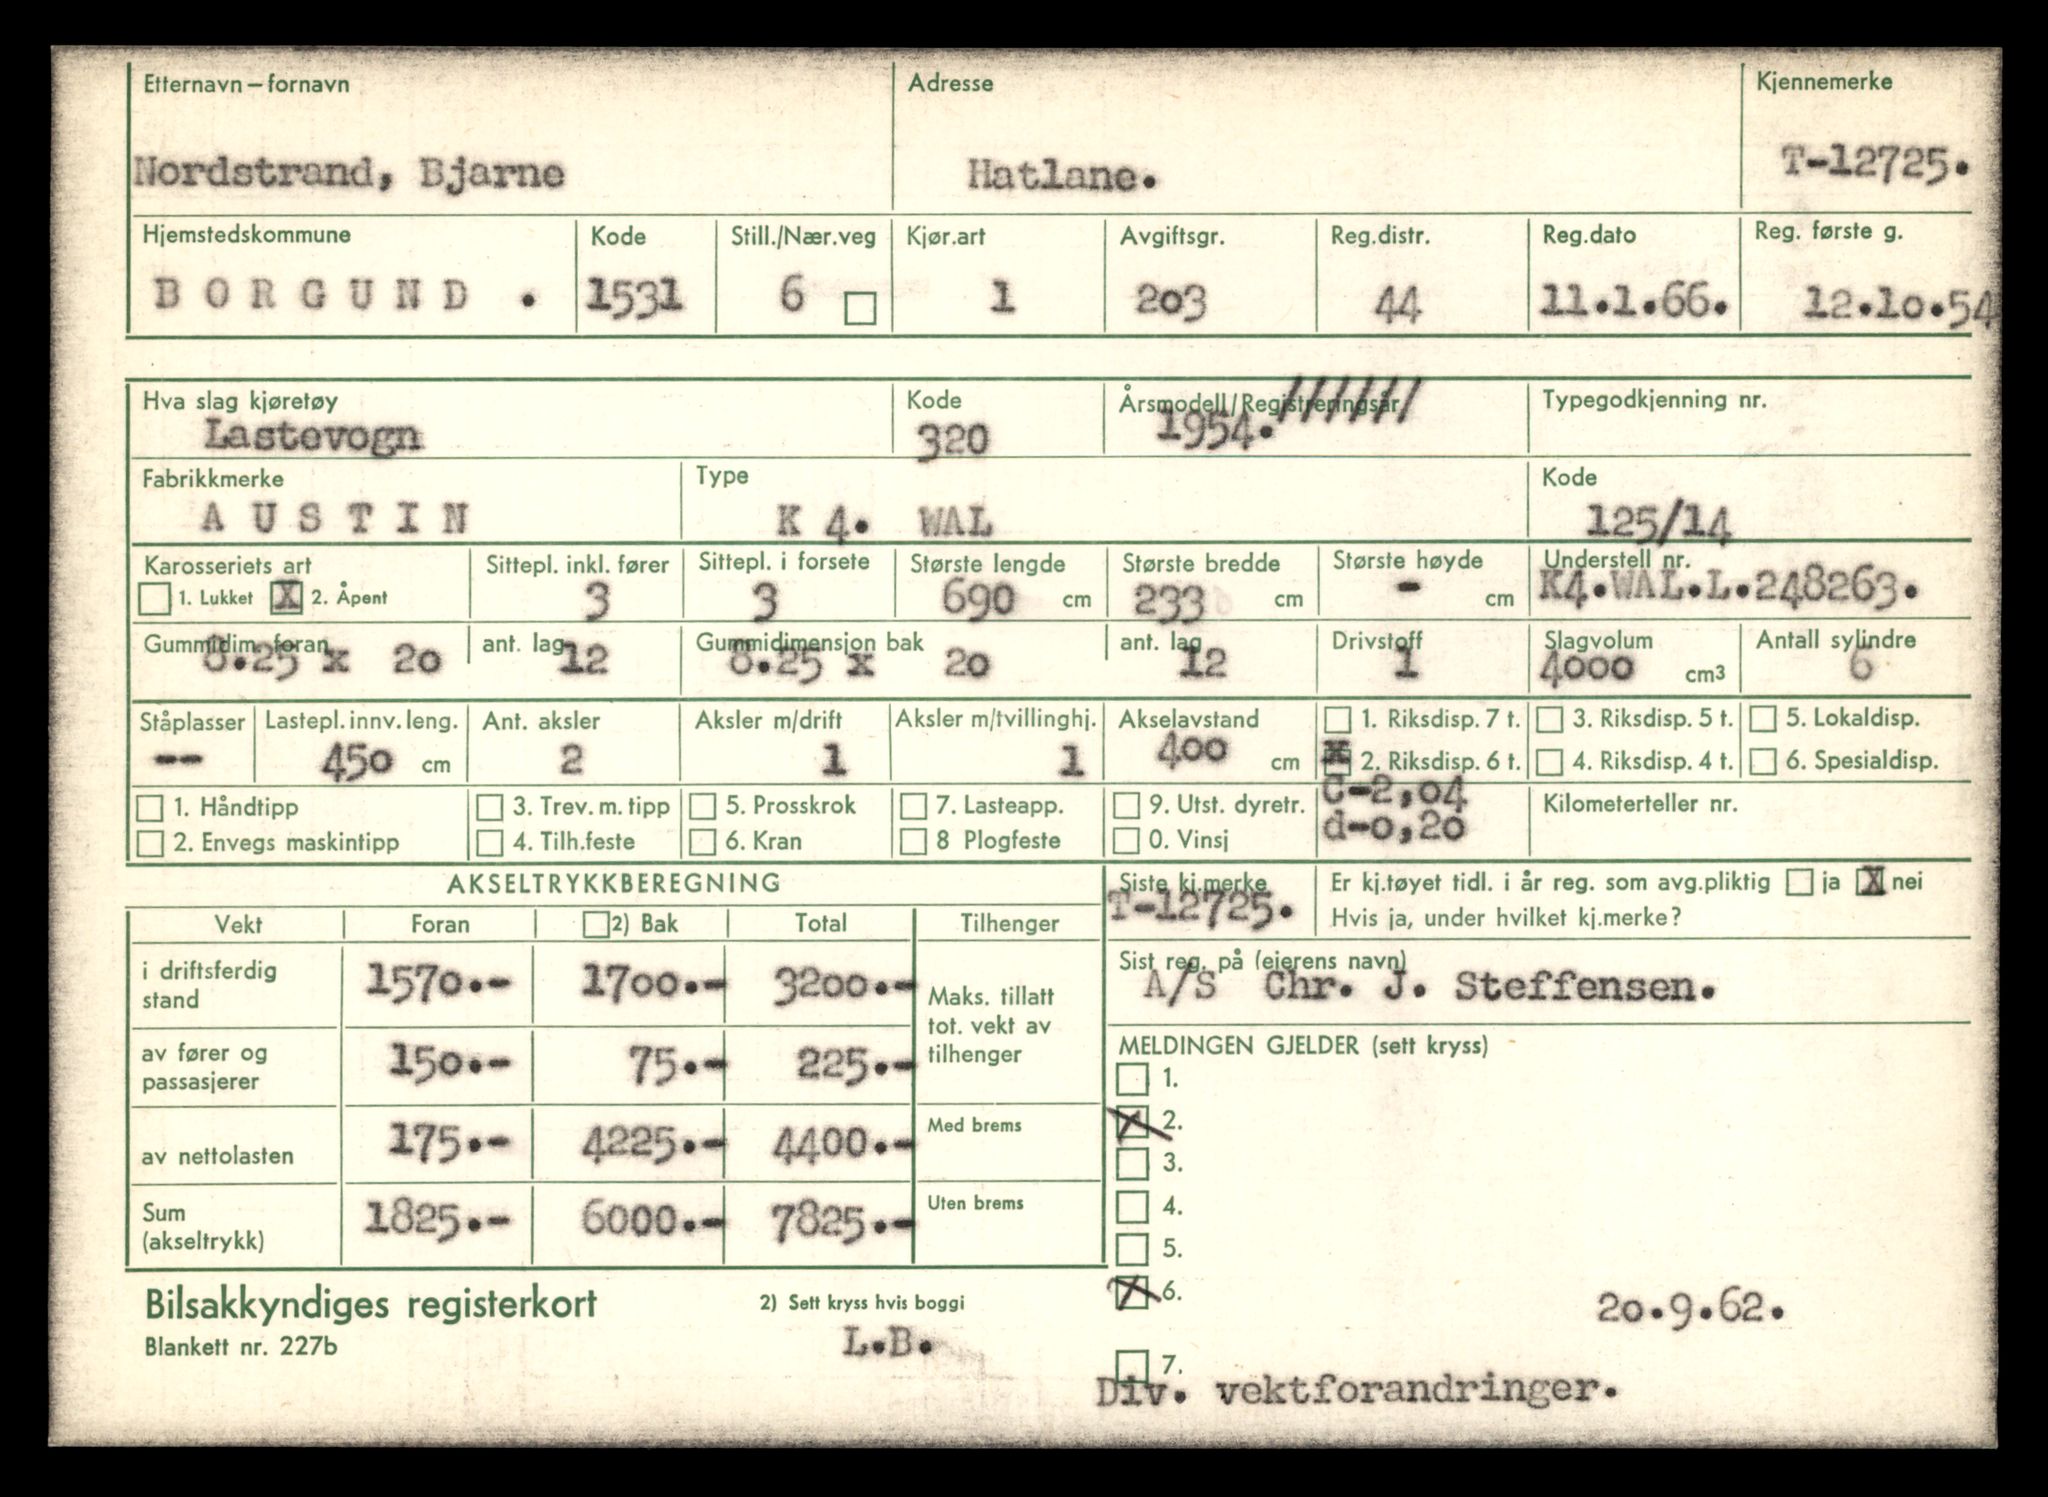 Etternavn – fornavn Adresse Kjennemerke
Nordstrand, Bjarne Hatlane. T-12725.
Hjemstedskommune Kode Still./Nær.veg Kjør.art Avgiftsgr. Reg.distr. Reg.dato Reg. første g.
BORGUND . 1531 6 1 203 44 11.1.66. 12.10.54
Hva slag kjøretøy Kode Årsmodell/Registreringsår Typegodkjenning nr.
Lastevogn 320 1954. //////
Fabrikkmerke Type Kode
AUSTIN K 4. WAL 125/14
Karosseriets art Sittepl. inkl. fører Sittepl. i forsete Største lengde Største bredde Største høyde Understell nr.
1. Lukket X 2. Åpent 3 3 690 cm 233 cm - cm K4.WAL.L.248263.
Gummidim. foran ant. lag Gummidimensjon bak ant. lag Drivstoff Slagvolum Antall sylindre
8.25 x 20 12 8.25 x 20 12 1 4000 cm3 6
Ståplasser Lastepl. innv. leng. Ant. aksler Aksler m/drift Aksler m/tvillinghj. Akselavstand 1. Riksdisp. 7 t. 3. Riksdisp. 5 t. 5. Lokaldisp.
-- 450 cm 2 1 1 400 cm x 2. Riksdisp. 6 t. 4. Riksdisp. 4 t. 6. Spesialdisp.
1. Håndtipp 3. Trev. m. tipp 5. Prosskrok 7. Lasteapp. 9. Utst. dyretr. C-2,04 Kilometerteller nr.
2. Envegs maskintipp 4. Tilh.feste 6. Kran 8 Plogfeste 0. Vinsj d-0,20
AKSELTRYKKBEREGNING Siste kj.merke Er kj.tøyet tidl. i år reg. som avg.pliktig ja X nei
T-12725. Hvis ja, under hvilket kj.merke?
Vekt Foran 2) Bak Total Tilhenger
Sist reg. på (eierens navn)
A/S Chr. J. Steffensen.
i driftsferdig stand 1570.- 1700.- 3200.- Maks. tillatt tot. vekt av tilhenger
av fører og passasjerer 150.- 75.- 225.-
av nettolasten 175.- 4225.- 4400.- Med brems
Sum (akseltrykk) 1825.- 6000.- 7825.- Uten brems
MELDINGEN GJELDER (sett kryss)
1.
X 2.
3.
4.
5.
X 6.
20.9.62.
7.
Div. vektforandringer.
Bilsakkyndiges registerkort 2) Sett kryss hvis boggi
Blankett nr. 227b L.B.